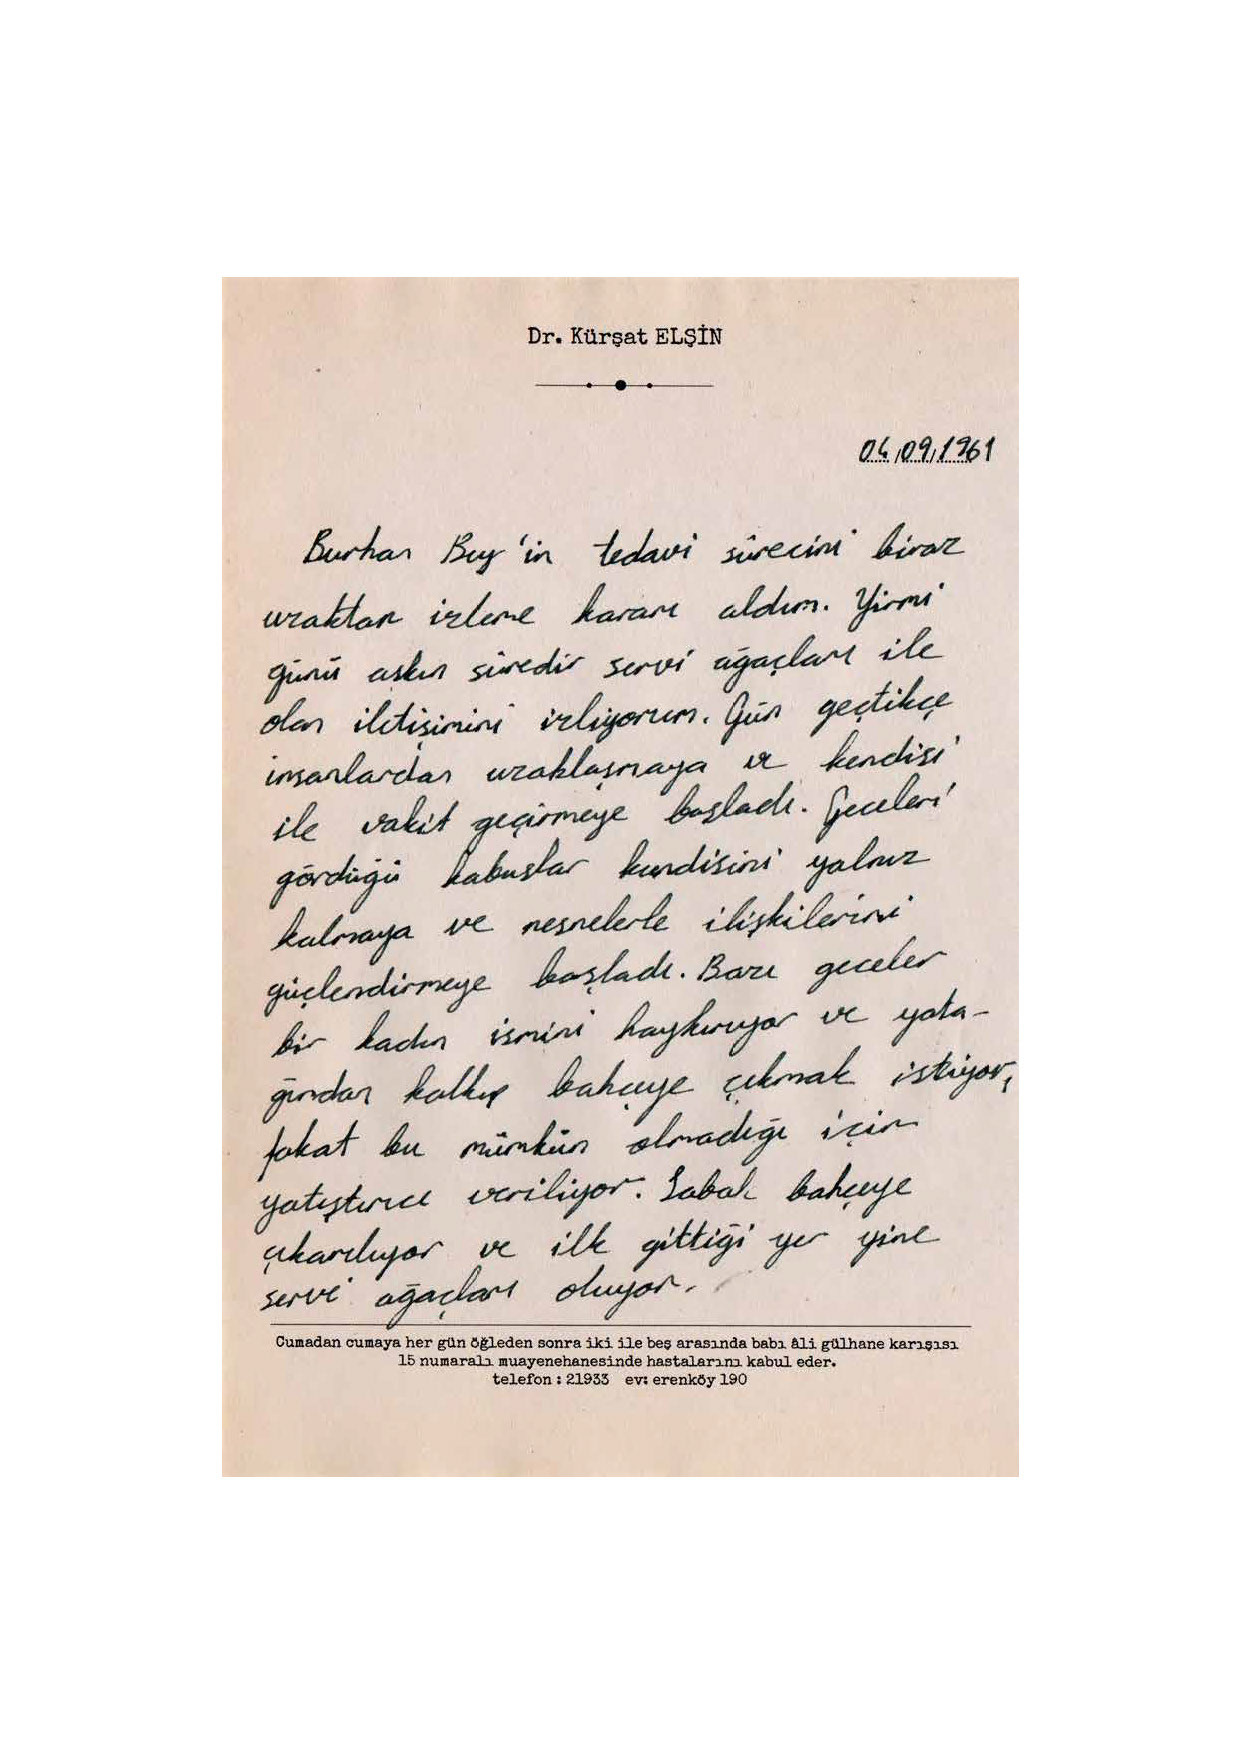 Dr. Kürşat ELŞİN
04.09.1961
Burhan Bey'in tedavi sürecini biraz
uzaktan izleme kararı aldım. Yirmi
günü aşkın süredir servi ağaçları ile
olan iletişimini izliyorum. Gün geçtikçe
insanlardan uzaklaşmaya ve kendisi
ile vakit geçirmeye başladı. Geceleri
gördüğü kabuslar kendisini yalnız
kalmaya ve nesnelerle ilişkilerini
güçlendirmeye başladı. Bazı geceler
bir kadın ismini haykırıyor ve yata-
ğından kalkıp bahçeye çıkmak istiyor,
fakat bu mümkün olmadığı için
yatıştırıcı veriliyor. Sabah bahçeye
çıkarılıyor ve ilk gittiği yer yine
servi ağaçları oluyor.
Cumadan cumaya her gün öğleden sonra iki ile beş arasında babı âli gülhane karışısı
15 numaralı muayenehanesinde hastalarını kabul eder.
telefon : 21933 ev: erenköy 190